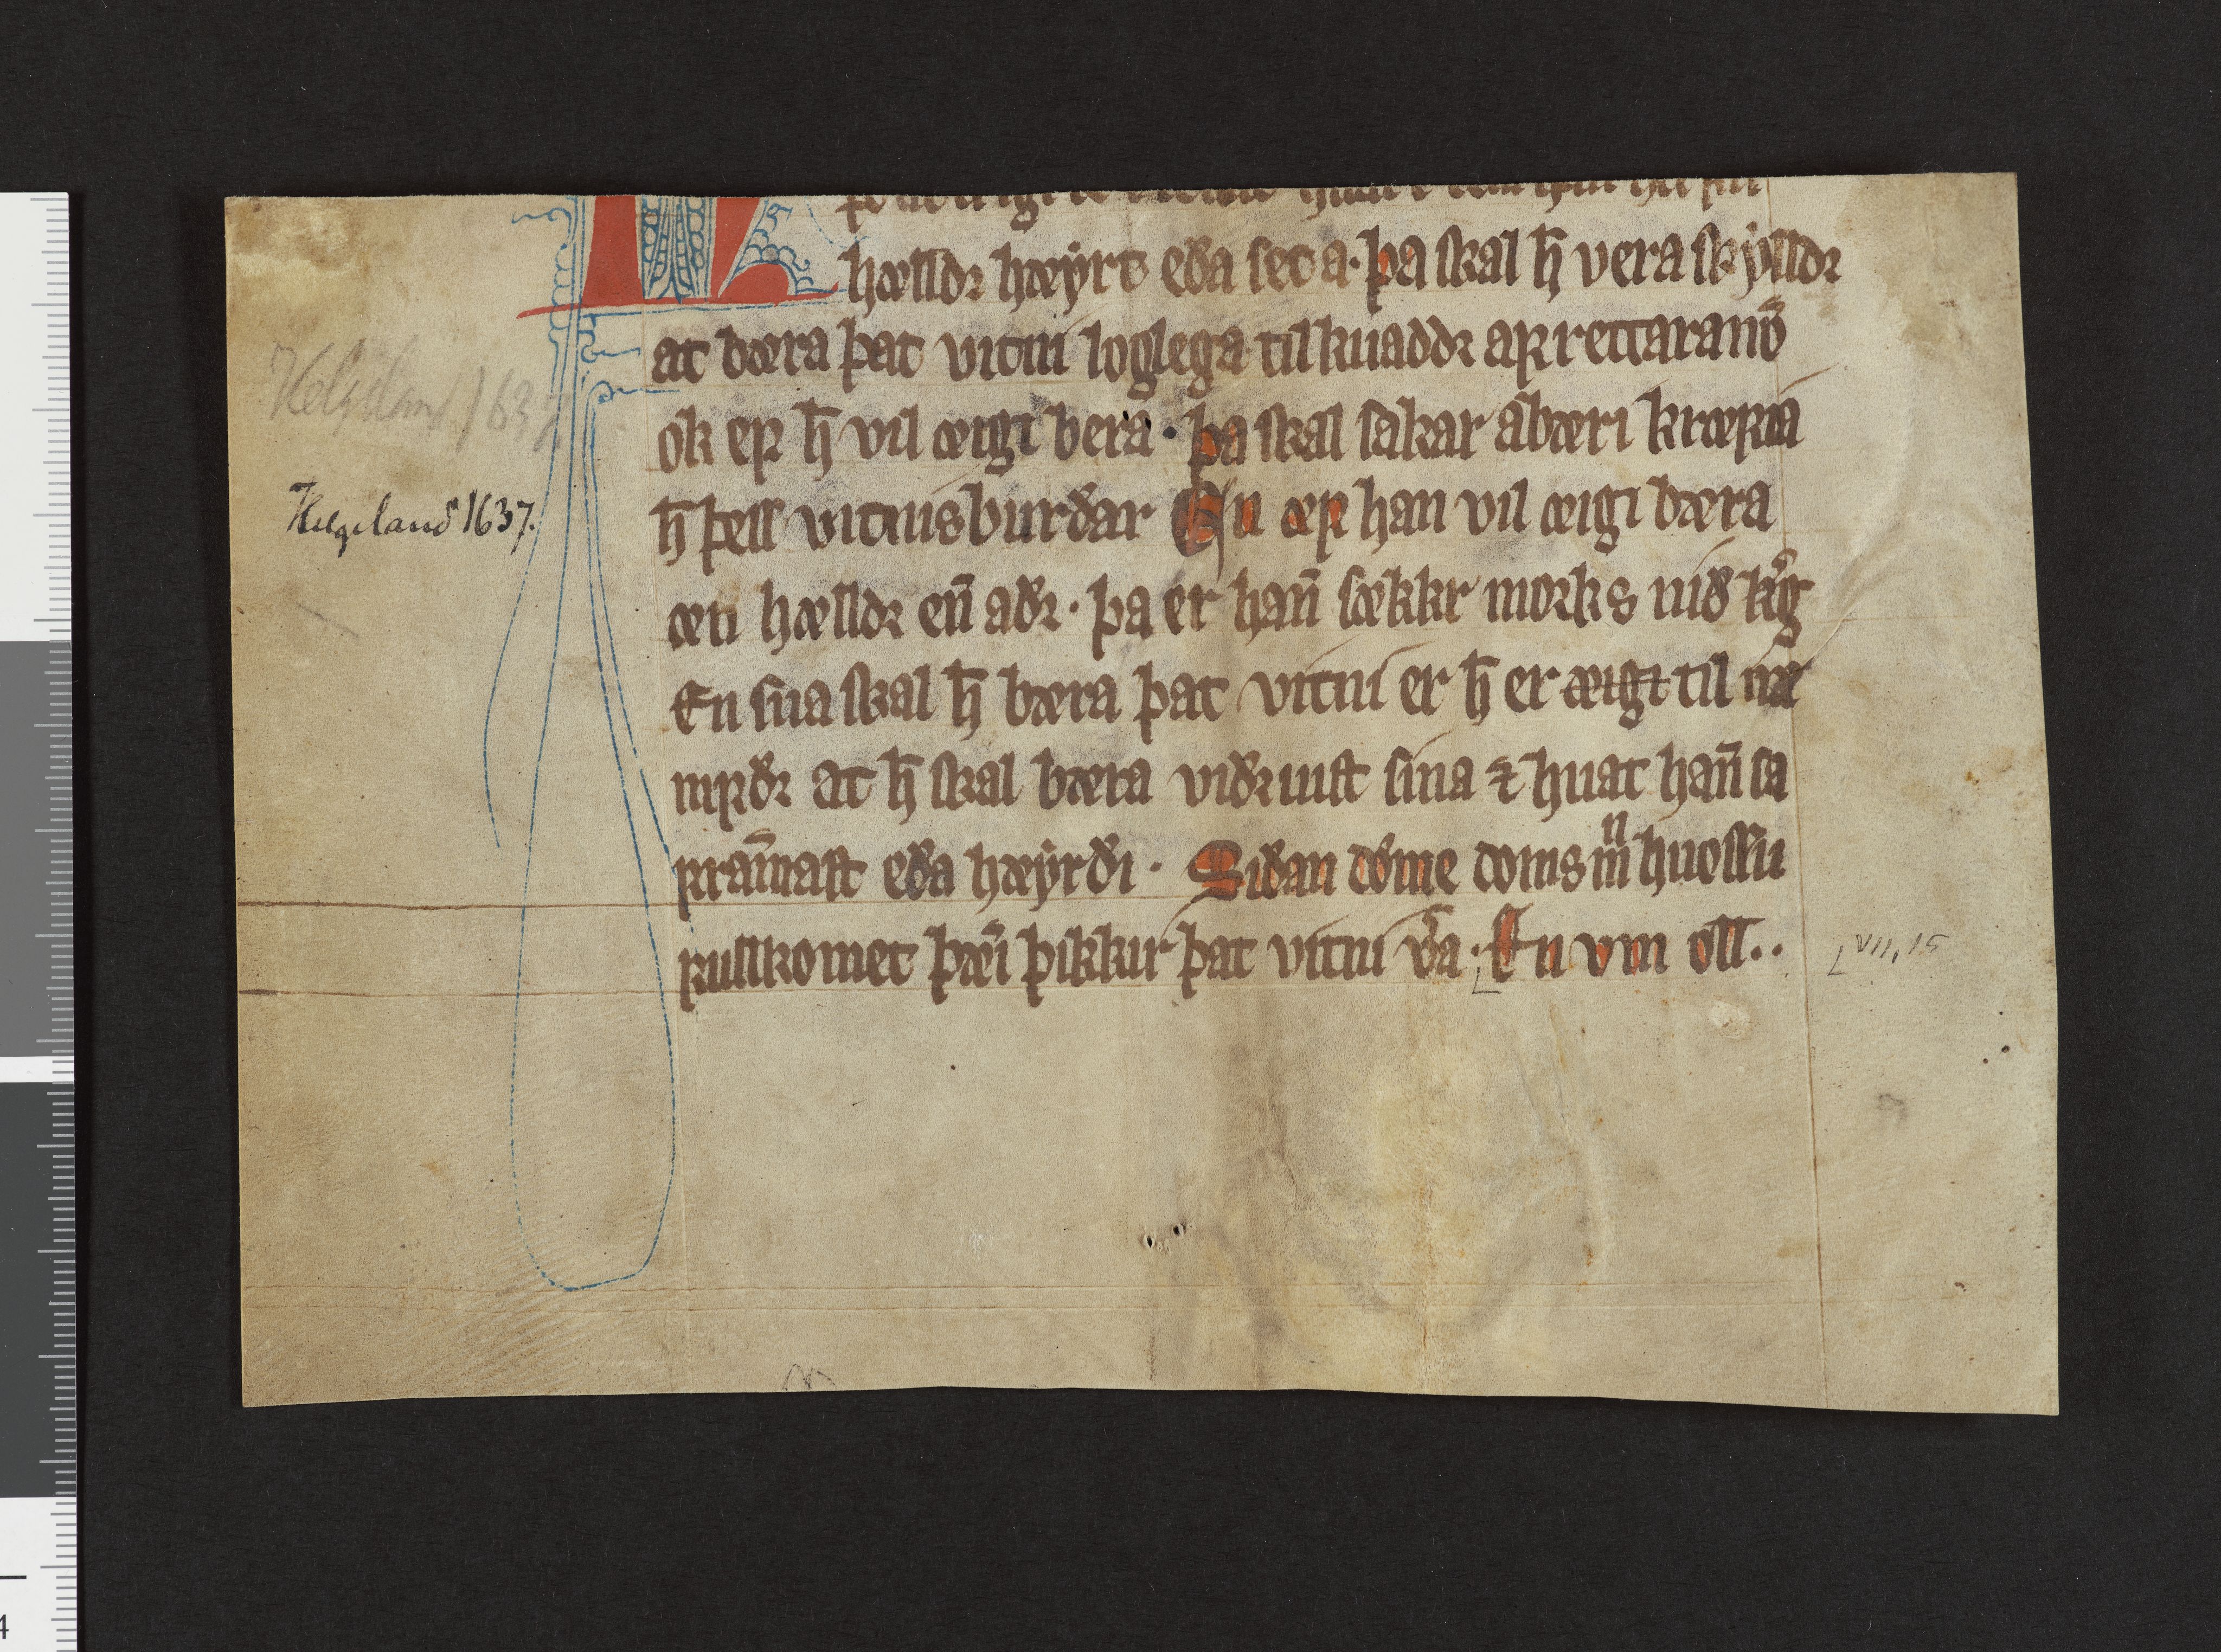 hælldꝛ hæyrt eða set a· þa skal h̅ vera skylldꝛ
at bæra þat vitni loglega til kuaddꝛ af rettaranū
ok ef h̅ vil æigi bera· þa skal sakar abæri kræfia
h̅ þess vitnisburðar En æf han vil æigi bæra
æn hælldꝛ en̅ aðꝛ· þa er han̅ sækkr morks við kg
En sua skal h̅ bæra þat vitni er h̅ er æigi til næ
mfðꝛ at h̅ skal bæra viðꝛuist sina ⁊ huat han̅ sa
fram̅ast eða hæyrði· Siðan dōme doms m̅ huossu
fullkomet þæi̅ þikkir þat vitni v̅a· En vm oll··
Helgeland 1637
Helgeland 1637.
VII, 15